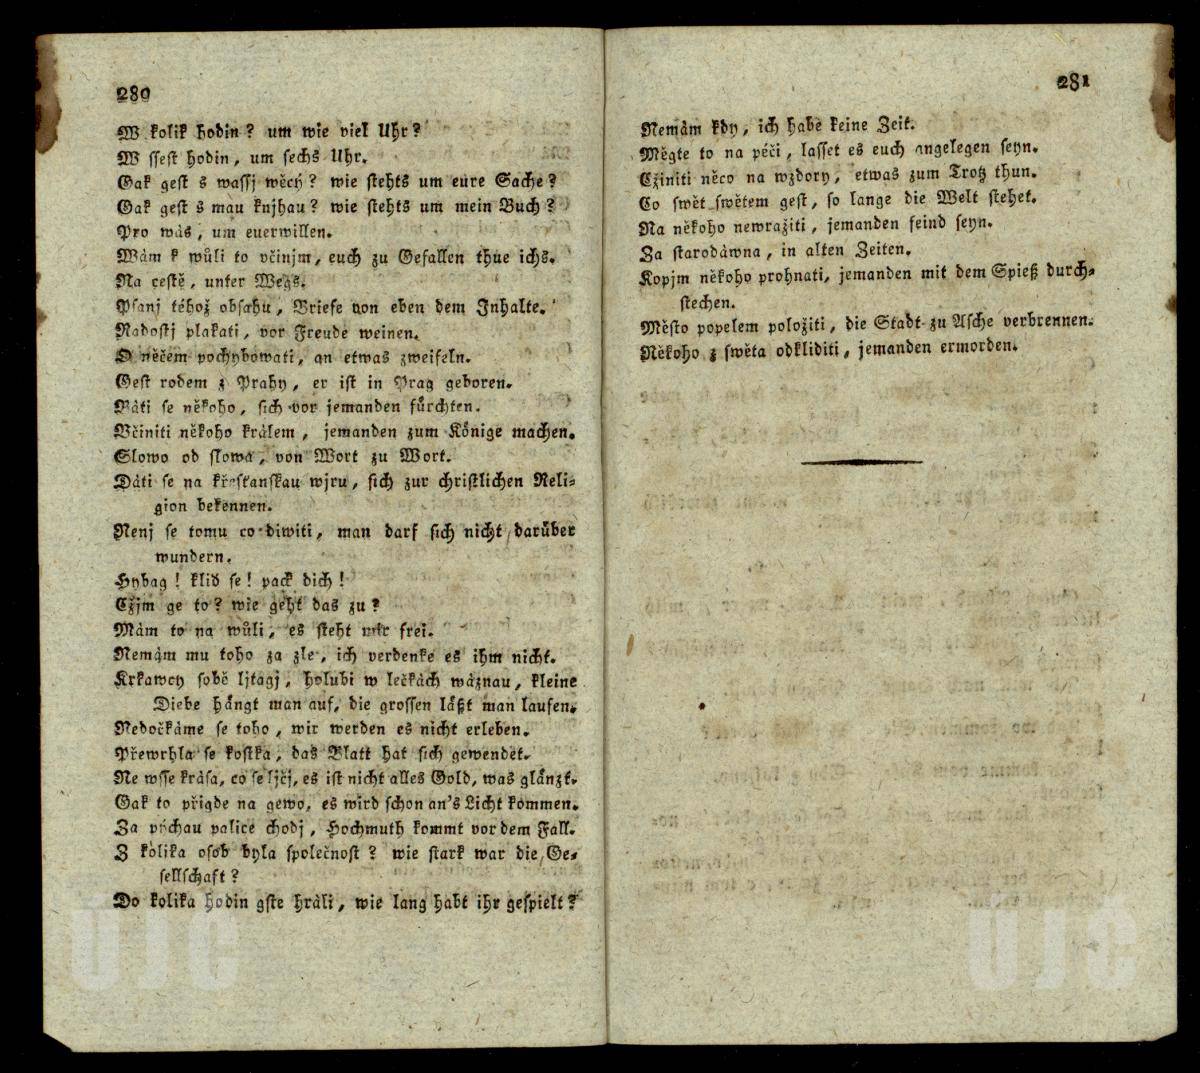 280
W kolik hodin? um wie viel Uhr?
W ssest hodin, um sechs Uhr.
Gak gest s wassj wěcý? wie stehts um eure Sache?
Gak gest s mau knjhau? wie stehts um mein Buch?
Pro wás, um euerwillen.
Wám k wůli to včinjm, euch zu Gefallen thue ichs.
Na cestě, unter Wegs.
Psanj téhož obsahu, Briefe von eben dem Inhalte.
Radostj plakati, vor Freude weinen.
O něčem pochybowati, an etwas zweifeln.
Gest rodem z Prahy, er ist in Prag geboren.
Báti se někoho, sich vor jemanden fürchten.
Včiniti někoho králem, jemanden zum Könige machen.
Slowo od slowa, von Wort zu Wort.
Dáti se na křesťanskau wjru, sich zur christlichen Reli-
gion bekennen.
Nenj se tomu co diwiti, man darf sich nicht darüber
wundern.
Hybag! klid se! pack dich!
Cžjm ge to? wie geht das zu?
Mám to na wůli, es steht mir frei.
Nemám mu toho za zle, ich verdenke es ihm nicht.
Krkawcy sobě ljtagj, holubi w lečkách wáznau, kleine
Diebe hängt man auf, die grossen läßt man laufen.
Nedočkáme se toho, wir werden es nicht erleben.
Přewrhla se kostka, das Blatt hat sich gewendet.
Ne wsse krása, co se ljčj, es ist nicht alles Gold, was glänzt.
Gak to přigde na gewo, es wird schon an's Licht kommen.
Za pýchau palice chodj, Hochmuth kommt vor dem Fall.
Z kolika osob byla společnost? wie stark war die Ge-
sellschaft?
Do kolika hodin gste hráli, wie lang habt ihr gespielt?
281
Nemám kdy, ich habe keine Zeit.
Měgte to na péči, lasset es euch angelegen seyn.
Cžiniti něco na wzdory, etwas zum Trotz thun.
Co swět swětem gest, so lange die Welt stehet.
Na někoho newražiti, jemanden feind seyn.
Za starodáwna, in alten Zeiten.
Kopjm někoho prohnati, jemanden mit dem Spieß durch-
stechen.
Město popelem položiti, die Stadt zu Asche verbrennen.
Někoho z swěta odkliditi, jemanden ermorden.
ÚJČ
ÚJČ